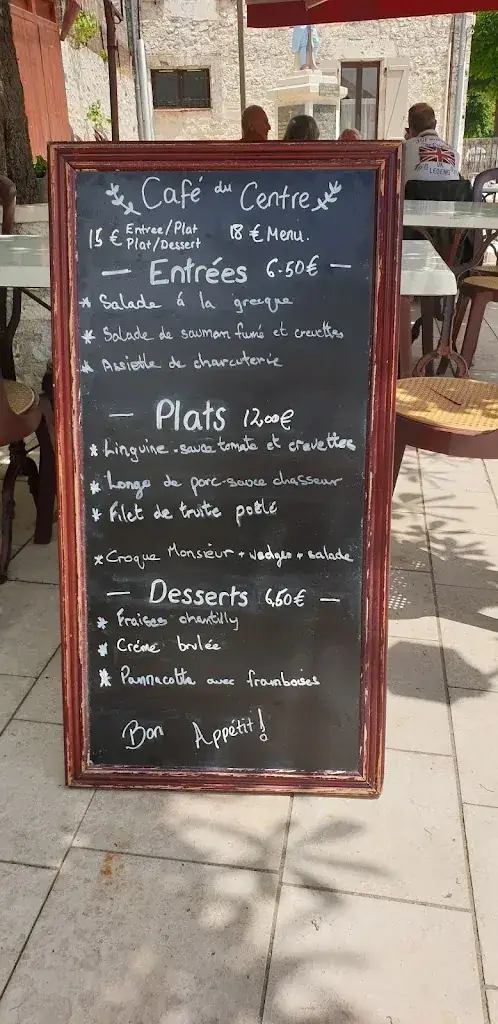 Café du Centre
15 € Entree/Plat
Plat/Dessert
18 € Menu.
— Entrées 6.50€ —
* Salade à la grecque
* Salade de saumon fumé et crevettes
* Assiette de charcuterie
— Plats 12,00€
* Linguine - sauce tomate et crevettes
* Longe de porc - sauce chasseur
* Filet de truite poêlé
* Croque Monsieur + wedges + salade
— Desserts 6,50€ —
* Fraises chantilly
* Créme brulée
* Pannacotta avec framboises
Bon Appétit!
LEGEND